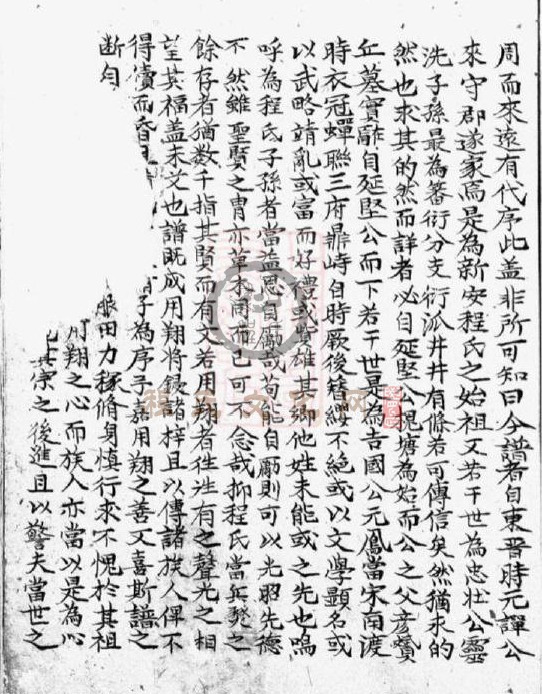 周而來遠有代序此盖非所可知曰今譜者自東晋時元譚公
來守郡遂家焉是為新安程氏之始祖又若干世為忠壮公靈
洗子孫最為蕃衍分支衍派井井有條若可傳信矣然猶求的
然也求其的然而詳者必自延堅公槐塘為始而公之父彦賛
丘墓實
自延堅公而下若干世是為吉國公元鳳當宋南渡
時衣冠蟬聯三府鼎峙自時厥後簪纓不絶或以文學顯名或
以武略靖亂或富而好禮或貲雄其鄉他姓未能或之先也嗚
呼為程氏子孫者當益思自勵哉苟能自勵則可以光昭先德
不然雖聖賢之胄亦草木同
而已可不念哉抑程氏當兵燹之
餘存者猶数千指其賢而有文若用翔者徃徃有之聲光之相
望其福盖未艾也譜既成用翔將鋟諸梓且以傳諸族人俾不
得
而
子為序予嘉用翔之善又喜斯譜之
断
服田力穡脩身慎行求不愧於其祖
用翔之心而族人亦當以是為心
宗之後進且以警夫當世之